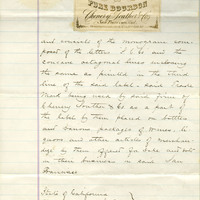 PURE BOURBON
Chenery Souther & Co
San Francisco, Cal.
and consists of the monogram com-
posed of the letters C S & Co and the
concave octagonal lines enclosing
the same as printed in the third
line of the said label. said Trade
Mark being used by said firm of
Chenery Souther & Co as a part of
the label by them placed on bottles
and various packages of Wines, li-
quors and other articles of merchan-
dize by them offered for sale and sold
in their business in said San
Francisco
State of California